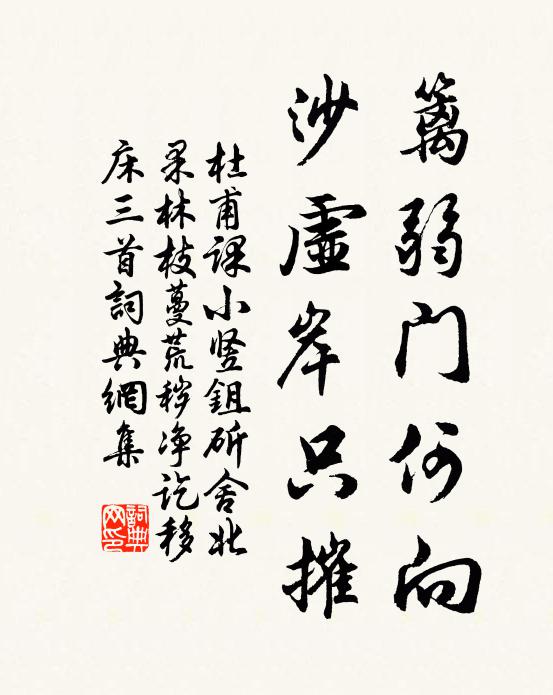 篱弱门何向
沙虚岸只摧
杜甫課小竖鉏斫舍北
果林枝蔓荒秽净讫移
床三首詞典網集
詞典网印